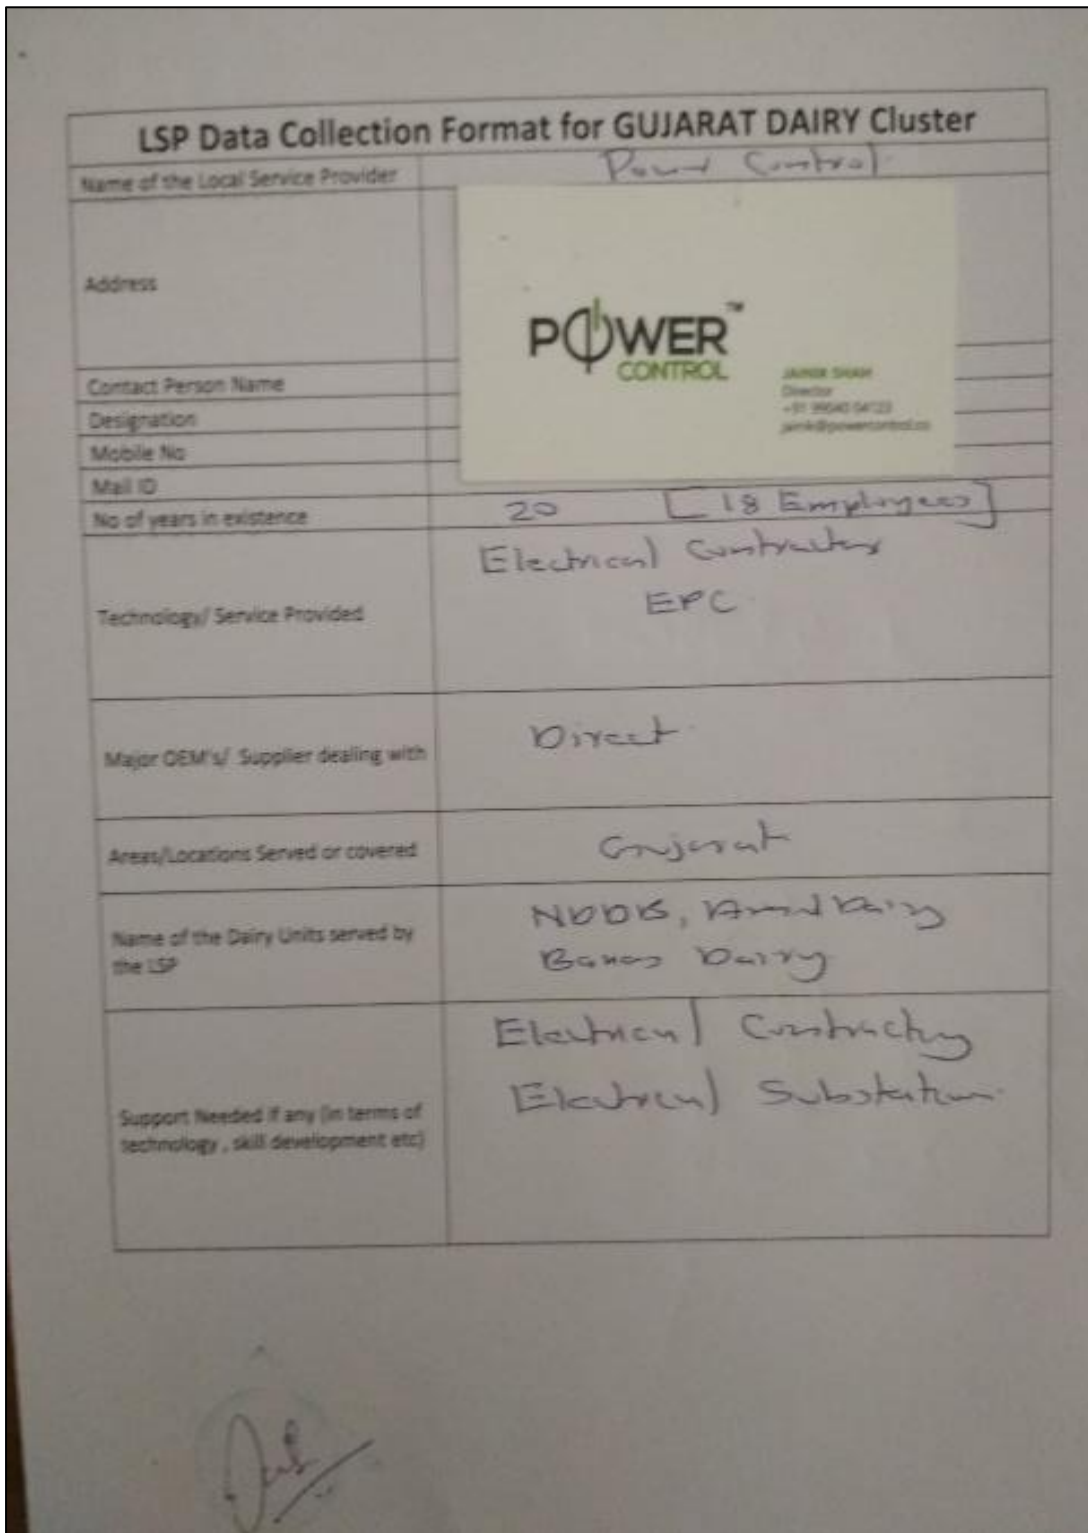 LSP Data Collection Format for GUJARAT DAIRY Cluster
Name of the Local Service Provider
Power Control
Address
POWER™
CONTROL
JAINIK SHAH
Director
+91 99040 04123
jainik@powercontrol.co
Contact Person Name
Designation
Mobile No
Mail ID
No of years in existence
20 [18 Employees]
Technology/ Service Provided
Electrical Contractor
EPC
Major OEM's/ Supplier dealing with
Direct
Areas/Locations Served or covered
Gujarat
Name of the Dairy Units served by
the LSP
NDDB, Amul Dairy
Banas Dairy
Support Needed if any (in terms of
technology , skill development etc)
Electrical Contracting
Electrical Substation